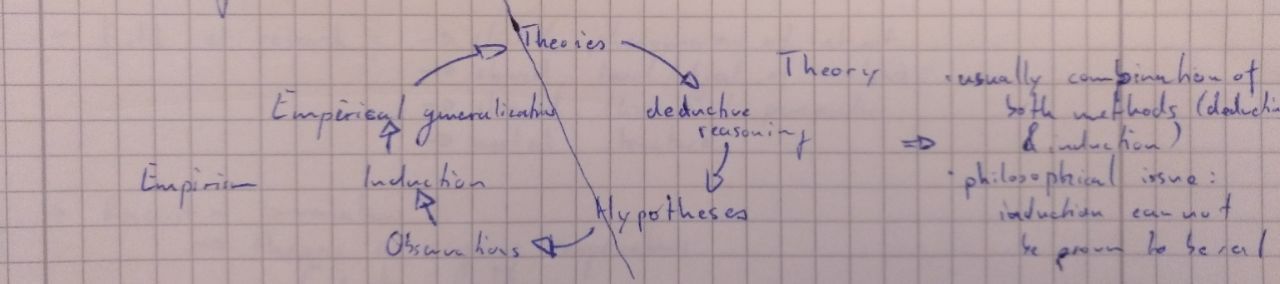 Theories
Theory
usually combination of
Empirical generalization
deductive
reasoning
both methods (deducti
& induction)
⇒
Empirism
Induction
· philosophical issue:
Hypotheses
induction can not
Observations
be proven to be real